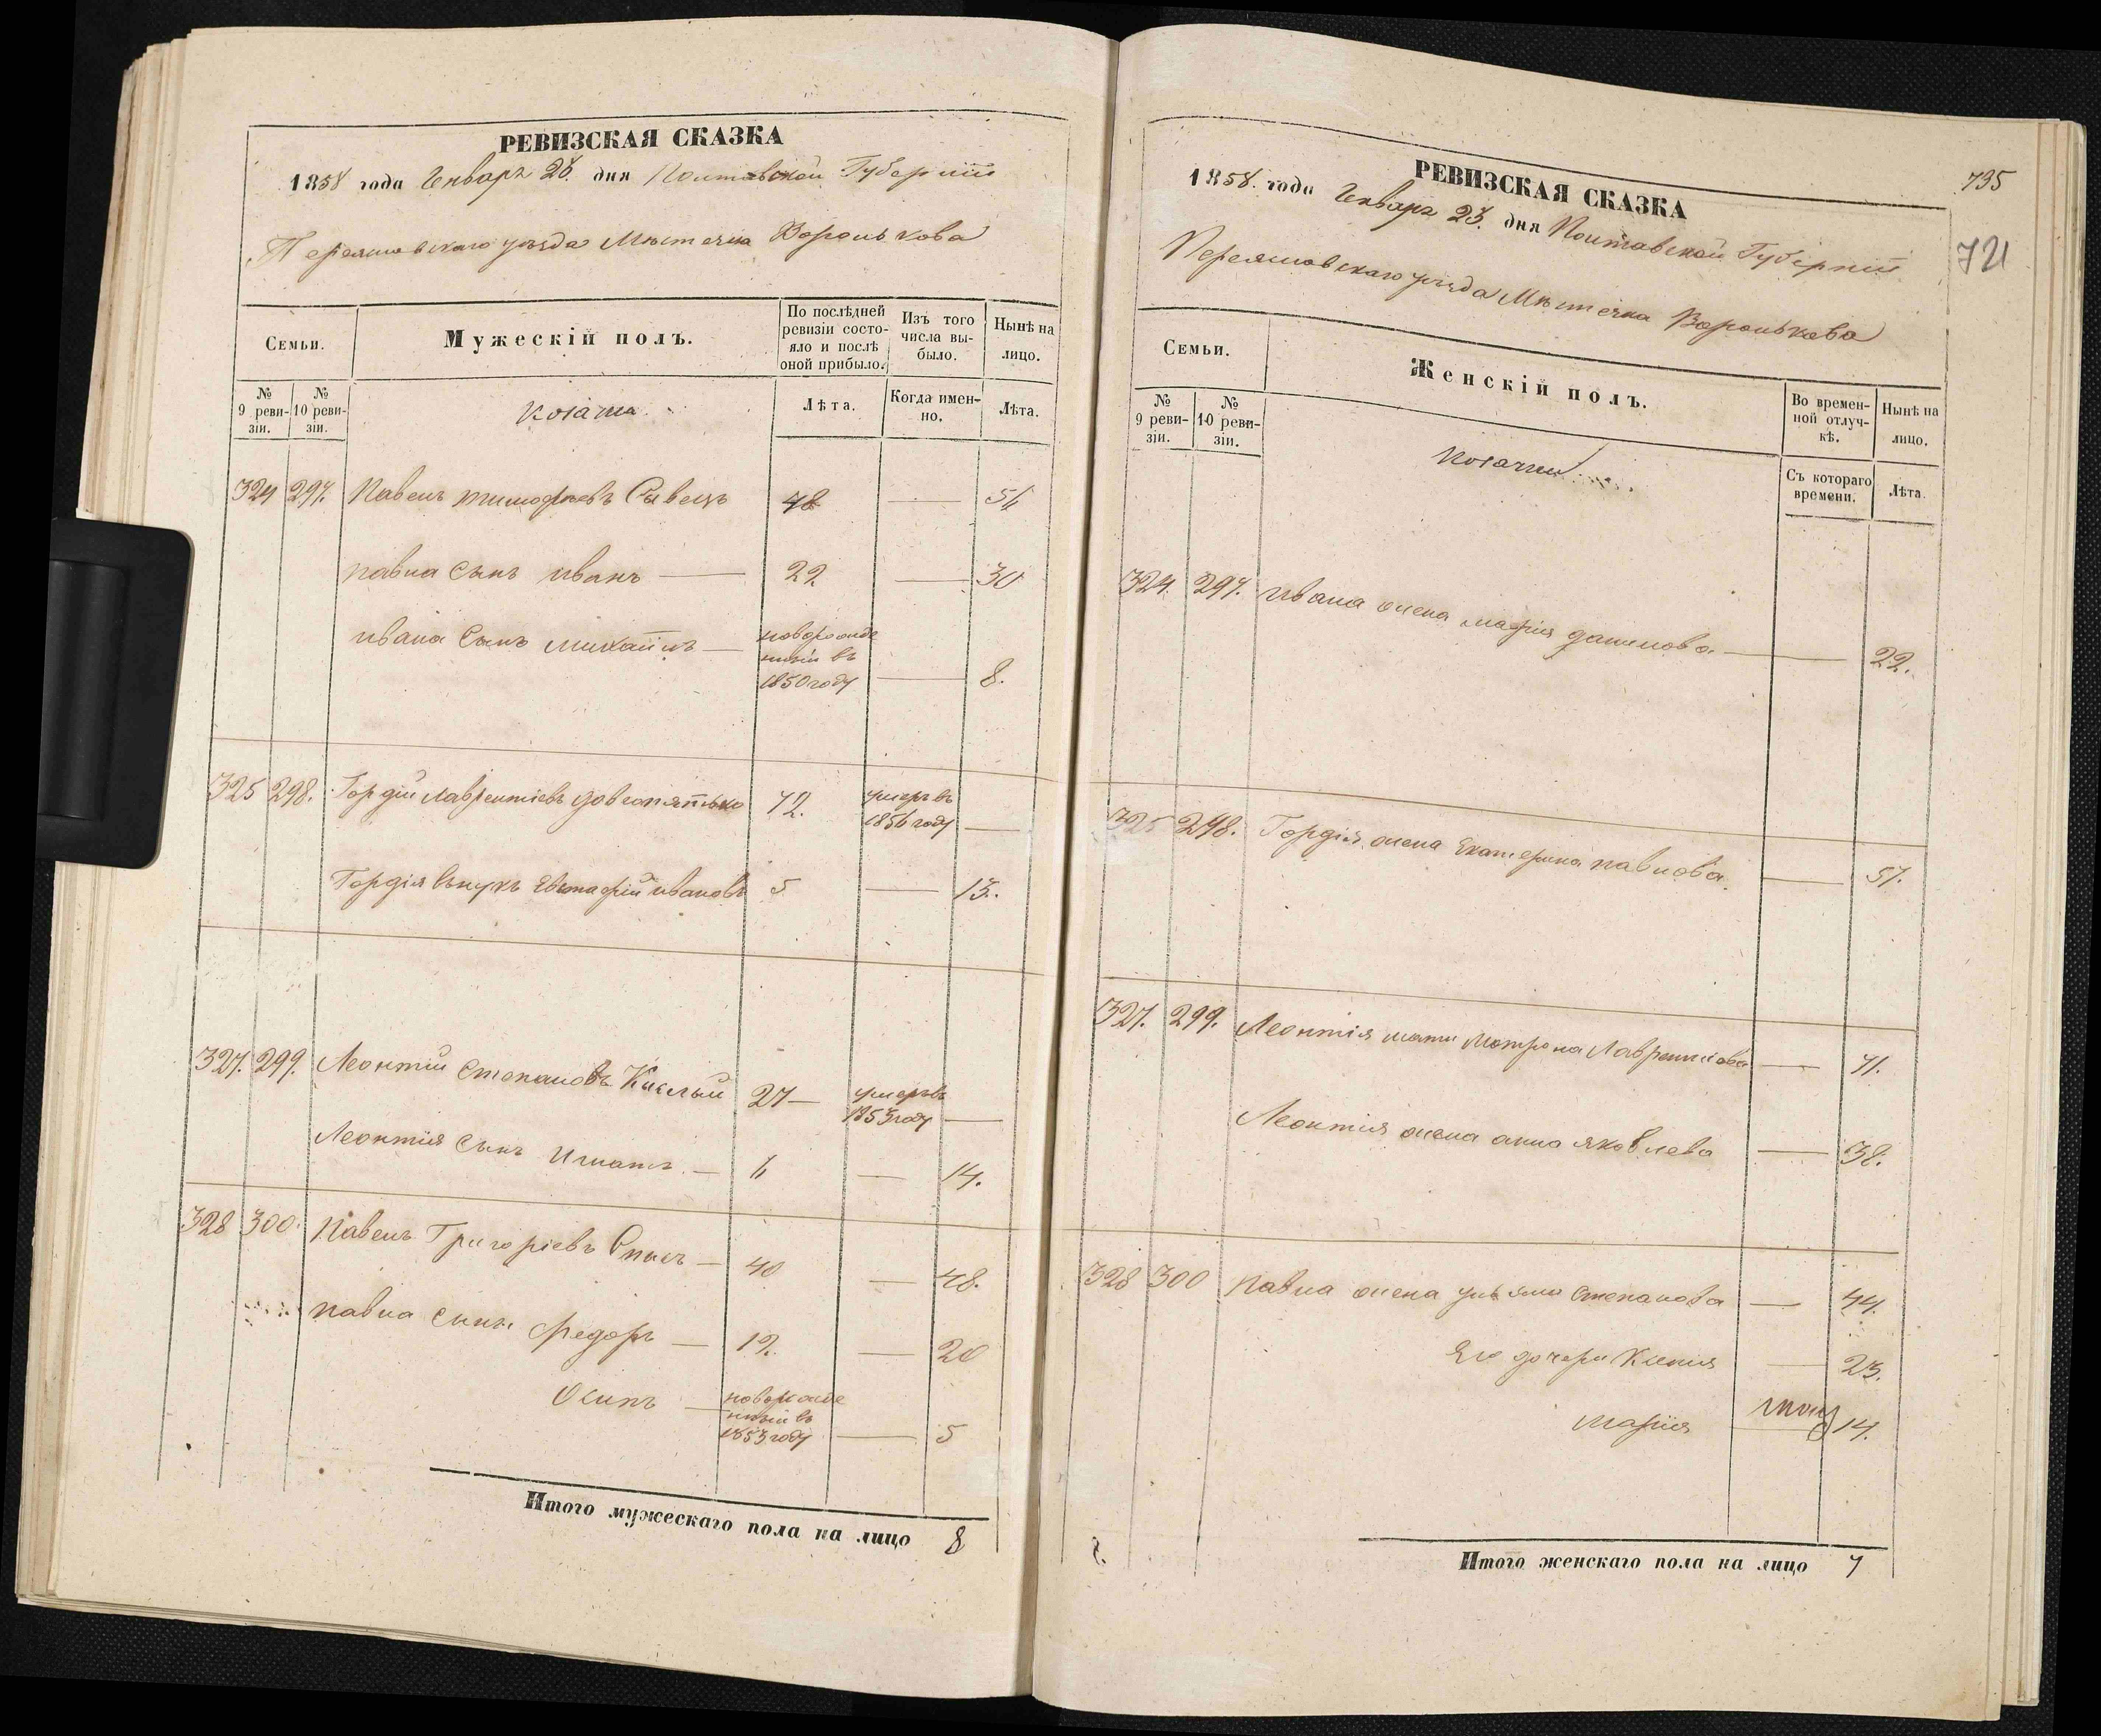 РЕВИЗСКАЯ СКАЗКА
1858 года Генваря 23. дня Полтавской Губерніи
Переяславскаго уѣзда Мѣстечка Воронькова
Семьи.
Мужескій полъ.
По послѣдней ревизіи состояло и послѣ оной прибыло.
Изъ того числа выбыло.
Нынѣ на лицо.
№ 9 ревизіи.
№ 10 ревизіи.
Козаки
Лѣта.
Когда именно.
Лѣта.
324 297. Павелъ Тимофѣевъ 48 — 56
Павла сынъ Иванъ — 22. — 30
Ивана сынъ Михаилъ — новорожденный въ 1850 году — 8.
325 298. Гордій Лаврентіевъ 72. умеръ въ 1856 году —
Гордія внукъ Евстафій Ивановъ 5 — 13.
327. 299. Леонтій Степановъ Кислый 27 — умеръ въ 1853 году —
Леонтія сынъ Игнатъ — 6 — 14.
328 300. Павелъ Григоріевъ — 40 — 48.
Павла сынъ Федоръ — 12. — 20
Осипъ — новорожденный въ 1853 году — 5
Итого мужескаго пола на лицо 8
735
721
РЕВИЗСКАЯ СКАЗКА
1858. года Генваря 23. дня Полтавской Губерніи
Переяславскаго уѣзда Мѣстечка Воронькова
Семьи.
Женскій полъ.
Во временной отлучкѣ.
Нынѣ на лицо.
№ 9 ревизіи.
№ 10 ревизіи.
Козачки
Съ котораго времени.
Лѣта.
324. 297. Ивана жена Марія Данилова — 22.
325 298. Гордія жена Екатерина Павлова — 57.
327. 299. Леонтія мати Мотрона Лаврентіова — 71.
Леонтія жена Анна Яковлева — 38.
328 300 Павла жена Ульяна Степанова — 44.
Его дочери Ксенія — 23.
Марія — 14.
Итого женскаго пола на лицо 7